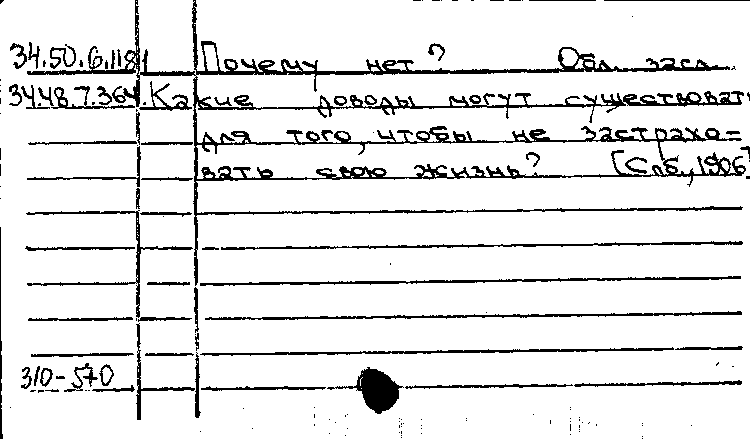 34.50.6.1181 Почему нет? Обл. загл.
34.48.7.364. Какие доводы могут существовать
для того, чтобы не застрахо=
вать свою жизнь? [Спб., 1906]
310-570